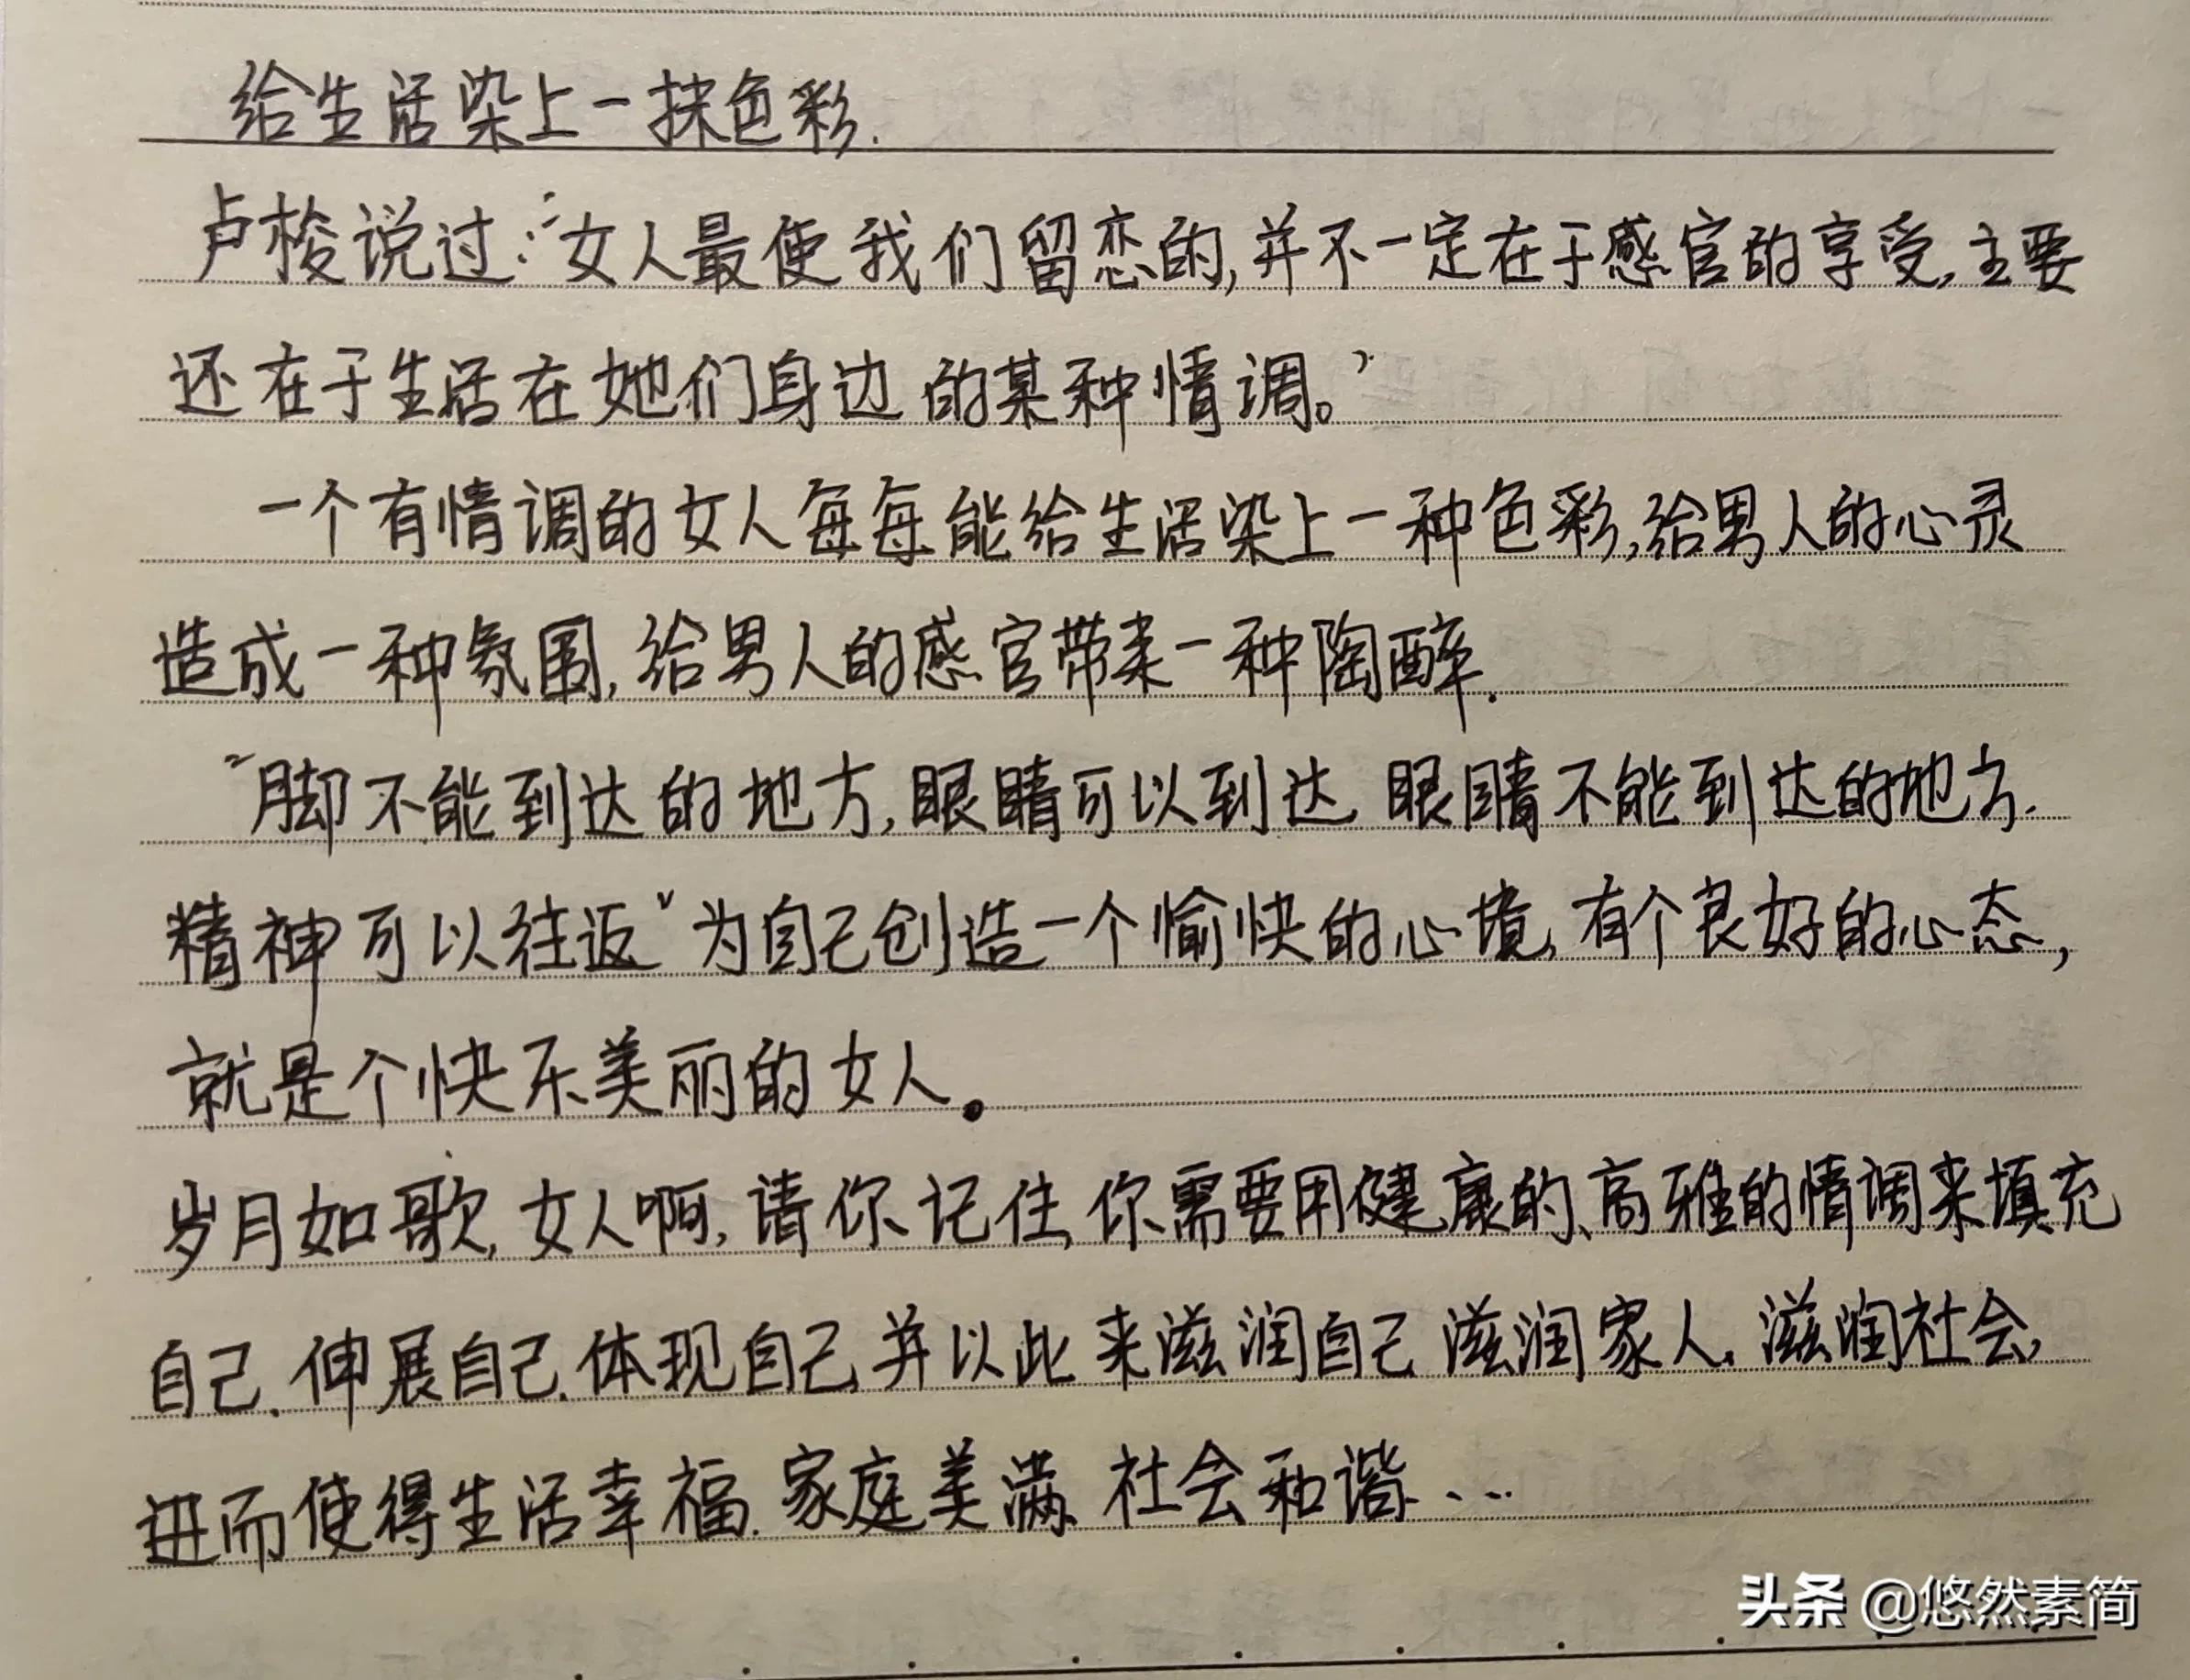 给生活染上一抹色彩.
卢梭说过:“女人最使我们留恋的,并不一定在于感官的享受,主要
还在于生活在她们身边的某种情调。”
一个有情调的女人每每能给生活染上一种色彩,给男人的心灵
造成一种氛围,给男人的感官带来一种陶醉.
“脚不能到达的地方,眼睛可以到达,眼睛不能到达的地方.
精神可以往返”为自己创造一个愉快的心境,有个良好的心态,
就是个快乐美丽的女人。
岁月如歌,女人啊,请你记住,你需要用健康的、高雅的情调来填充
自己.伸展自己.体现自己,并以此来滋润自己 滋润家人、滋润社会,
进而使得生活幸福.家庭美满、社会和谐...
头条 @悠然素简